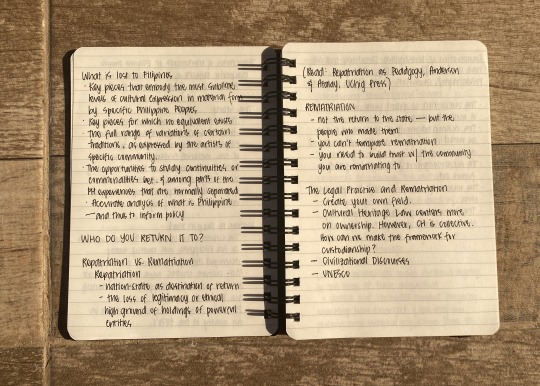 What is lost to Filipinos
· Key pieces that embody the most sublime
levels of cultural expression in material form
by specific Philippine Peoples
· Key pieces for which no equivalent exists
· The full range of variations of certain
traditions, as expressed by the artists of
specific community.
· The opportunities to study continuities or
commonalities bet. & among parts of the
PH experiences that are normally separated
· Accurate analysis of what is Philippine
— and thus to inform policy
WHO DO YOU RETURN IT TO?
Repatriation vs. Rematriation
Repatriation
- nation-state as destination of return
- the loss of legitimacy or ethical
high ground of holdings of powerful
entities
(Read: Repatriation as Pedagogy, Anderson
& Atalay, UChig Press)
REMATRIATION
- not the return to the state — but the
people who made them
- you can't template rematriation
- you need to build trust w/ the community
you are rematriating to
The Legal Process and Rematriation
- Create your own field.
- Cultural Heritage Law centers more
on ownership. However, CH is collective.
How can we make the framework for
custodianship?
- Civilizational Discourses
- UNESCO